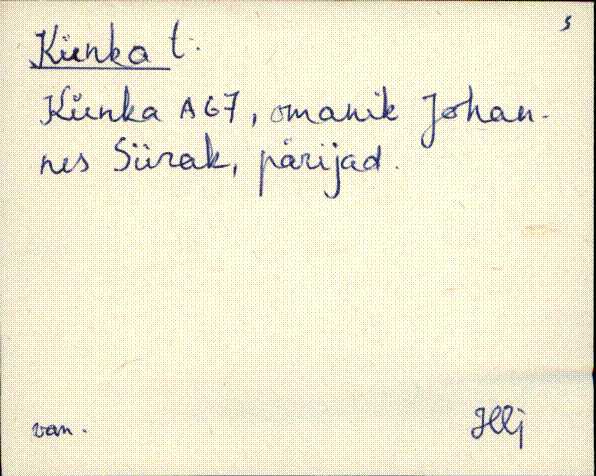 s
Künka t.
Künka A67, omanik Johan-
nes Siirak, pärijad.
van.
Hlj